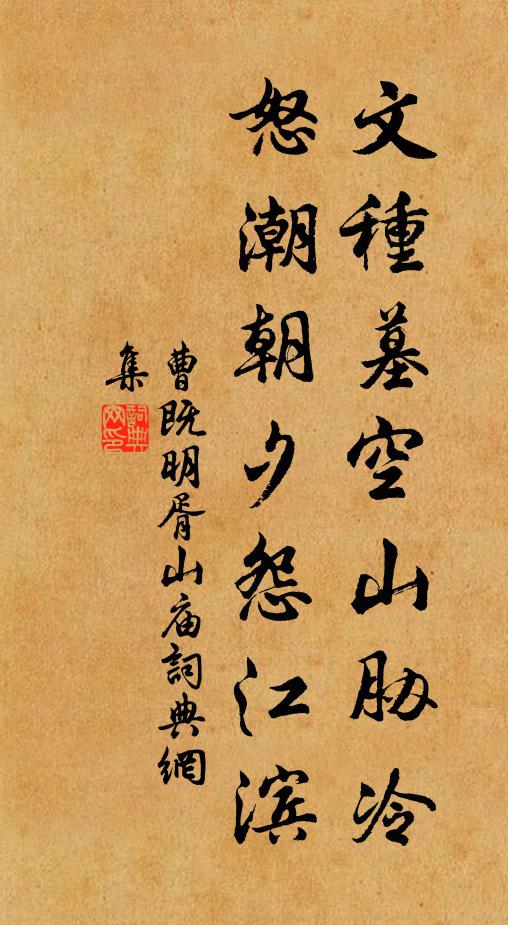 文種墓空山胁冷
怒潮朝夕怨江滨
曹既明胥山庙詞典網
集
詞典網印